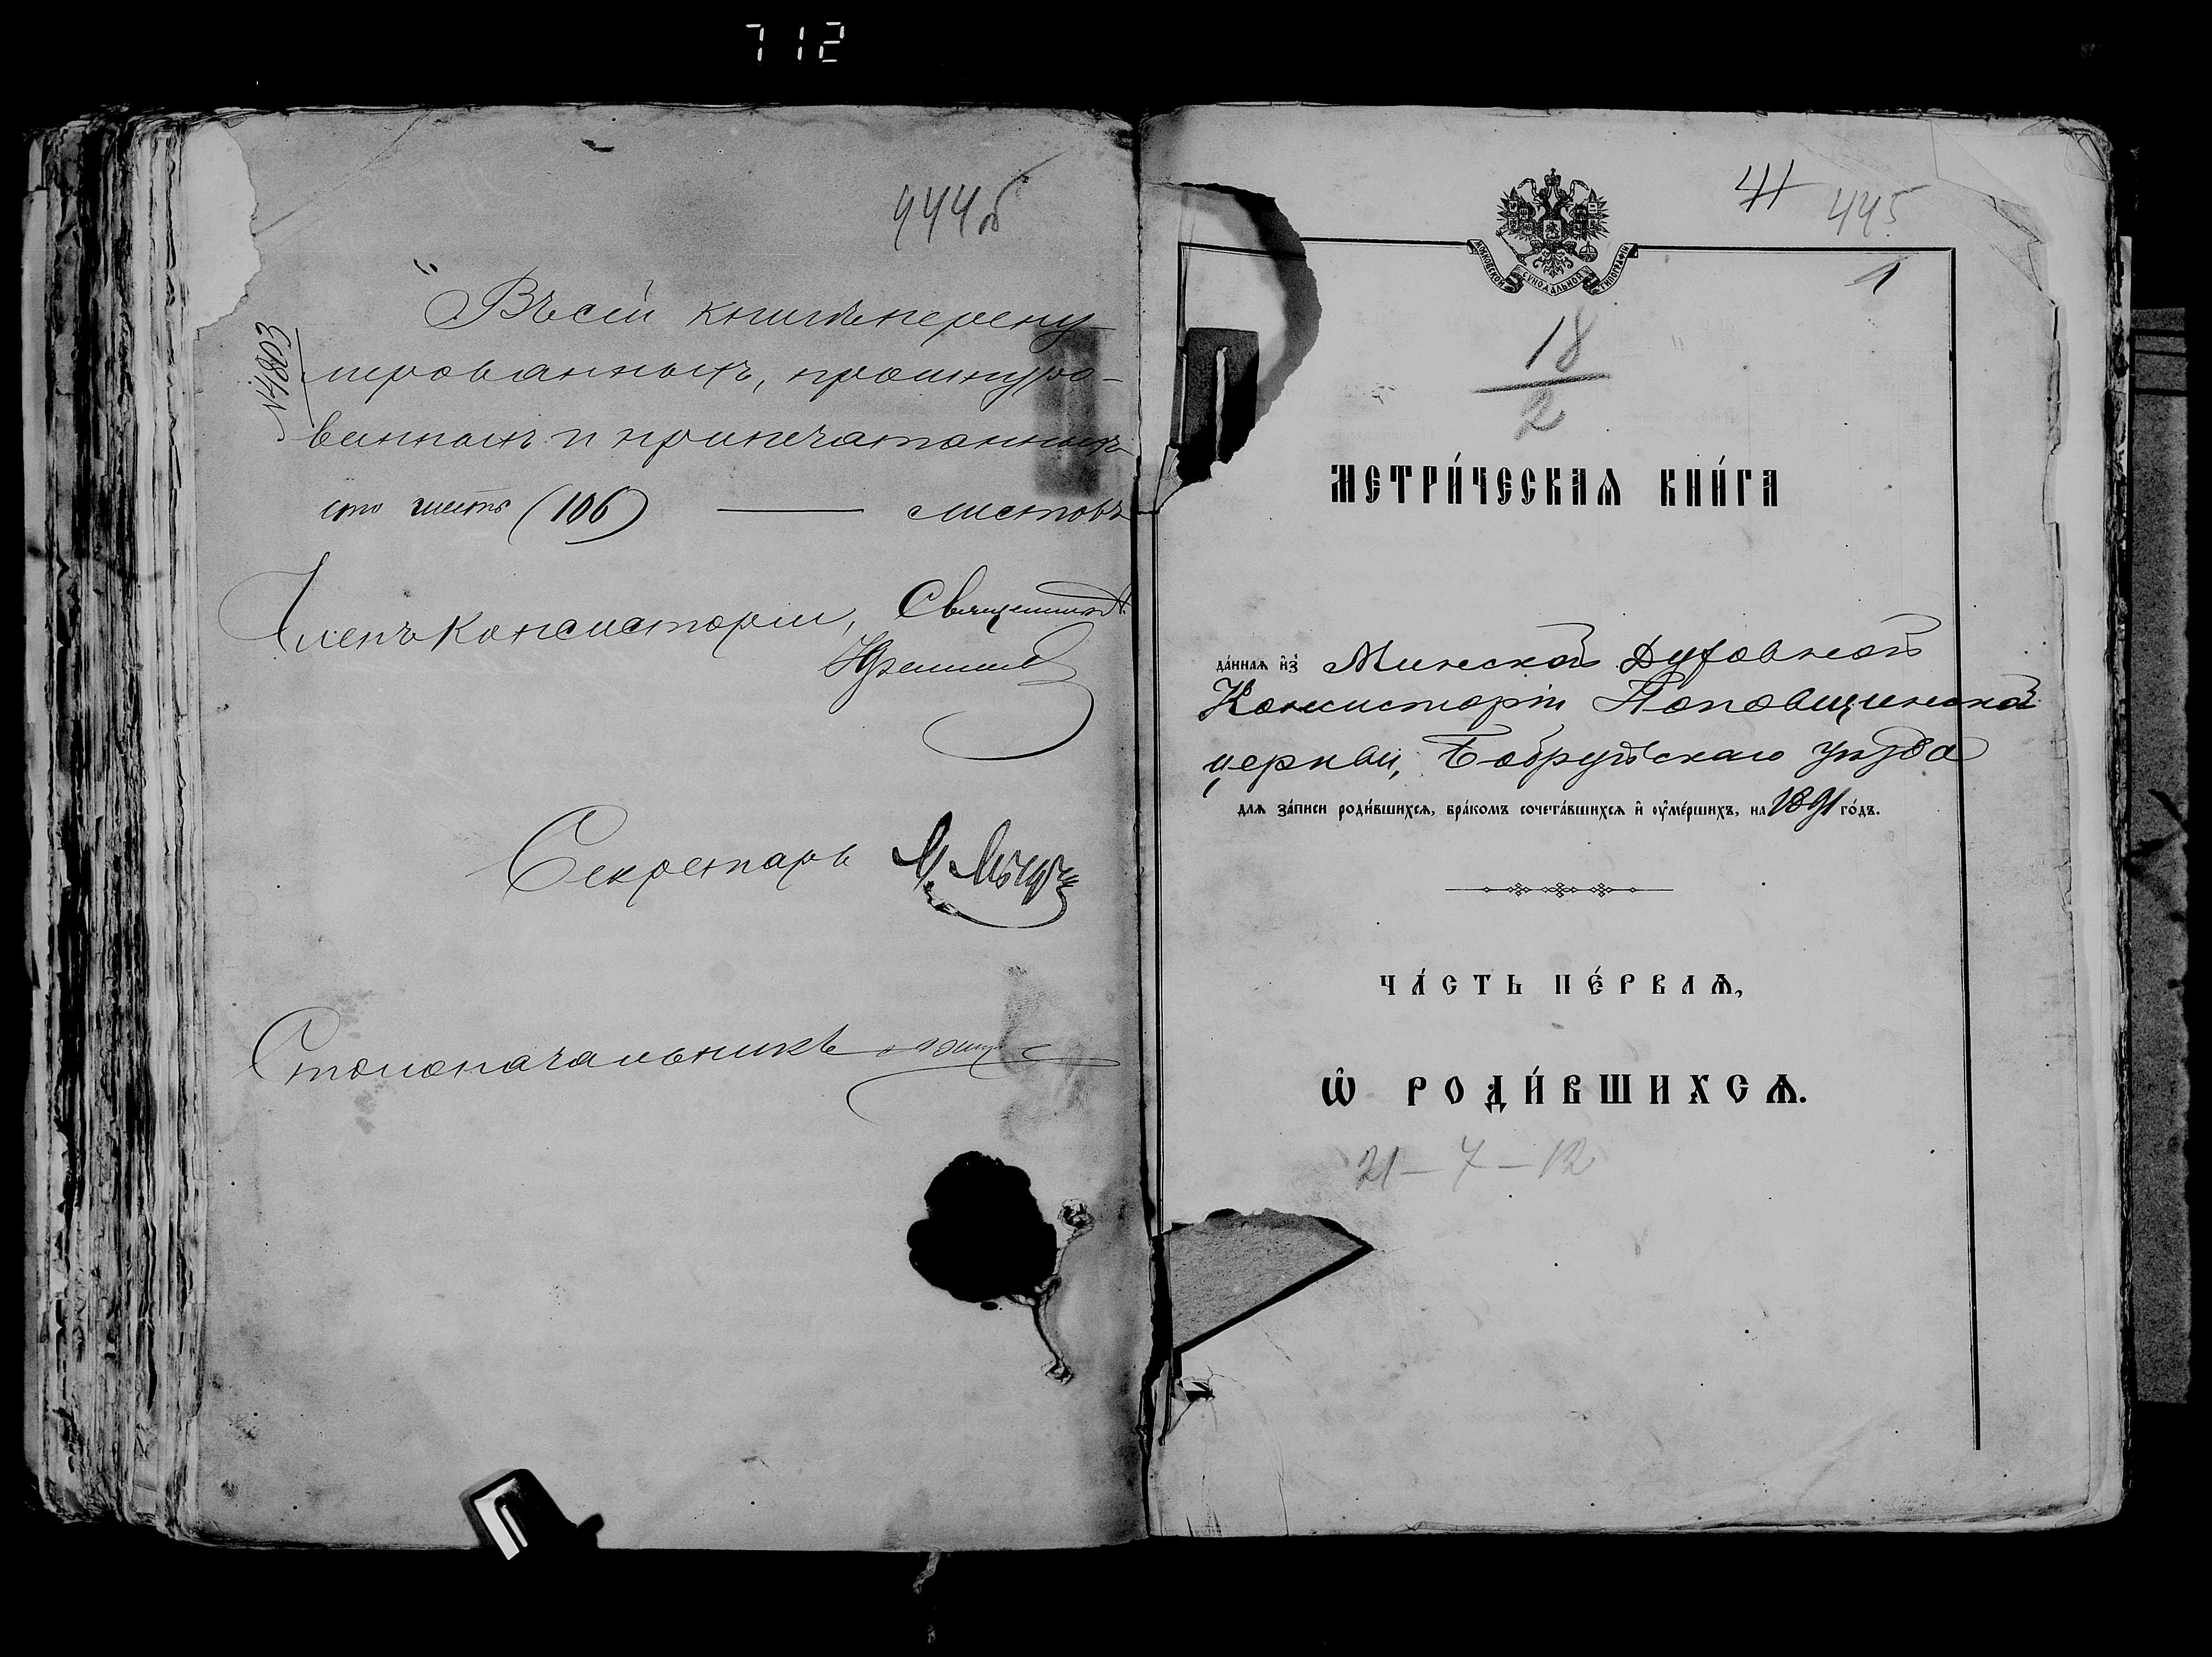 712
444об
Въ сей книгѣ перену
мерованныхъ, прошнуро-
ванныхъ и припечатанныхъ
сто шесть (106) — листовъ
№4803
Членъ Консисторіи, Священникъ
Секретарь
Столоначальникъ
41 445
1
МОСКОВСКОЙ СѴНОДАЛЬНОЙ ТИПОГРАФІИ
18
2
МЕТРИ́ЧЕСКАѦ КНИ́ГА
да́ннаѧ и҆з̾ Минской Духовной
Консисторіи Поповщинской
церкви, Бобруйскаго уѣзда
длѧ за́писи роди́вшихсѧ, бра́комъ сочета́вшихсѧ и҆ оу҆ме́ршихъ, на 1891 го́дъ.
ЧА́СТЬ ПЕ́РВАѦ,
Ѽ РОДИ́ВШИХСѦ.
21 — 7 — 12